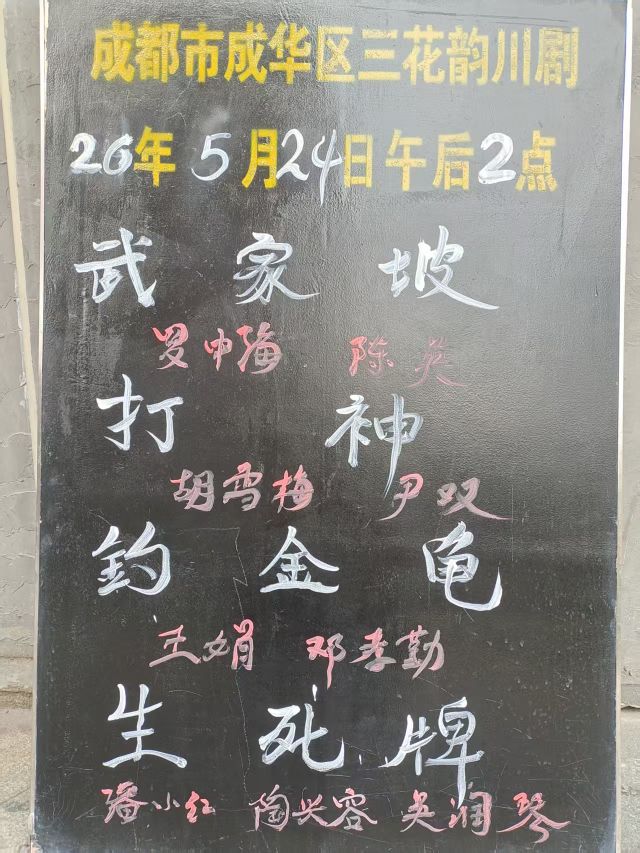 成都市成华区三花韵川剧
26年5月24日午后2点
武家坡
罗中海 陈英
打神
胡雪梅 尹双
钓金龟
王娟 邓李勤
生死牌
潘小红 陶兴容 吴润琴